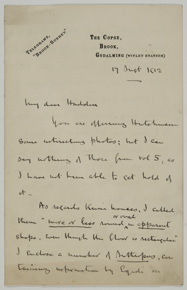 Telegrams,
"Brook-Surrey"
The Copse,
Brook,
Godalming (Witley Station)
17 Sept 1912
My dear Haddon
You are offering Hutchinson
some interesting photos; but I can
say nothing of those from vol 5, as
I have not been able to get hold of
it.
As regards Keriai houses, I called
them "more or less round or oval in apparent
shape, even though the floor is rectangular
I enclose a number of
taining information by